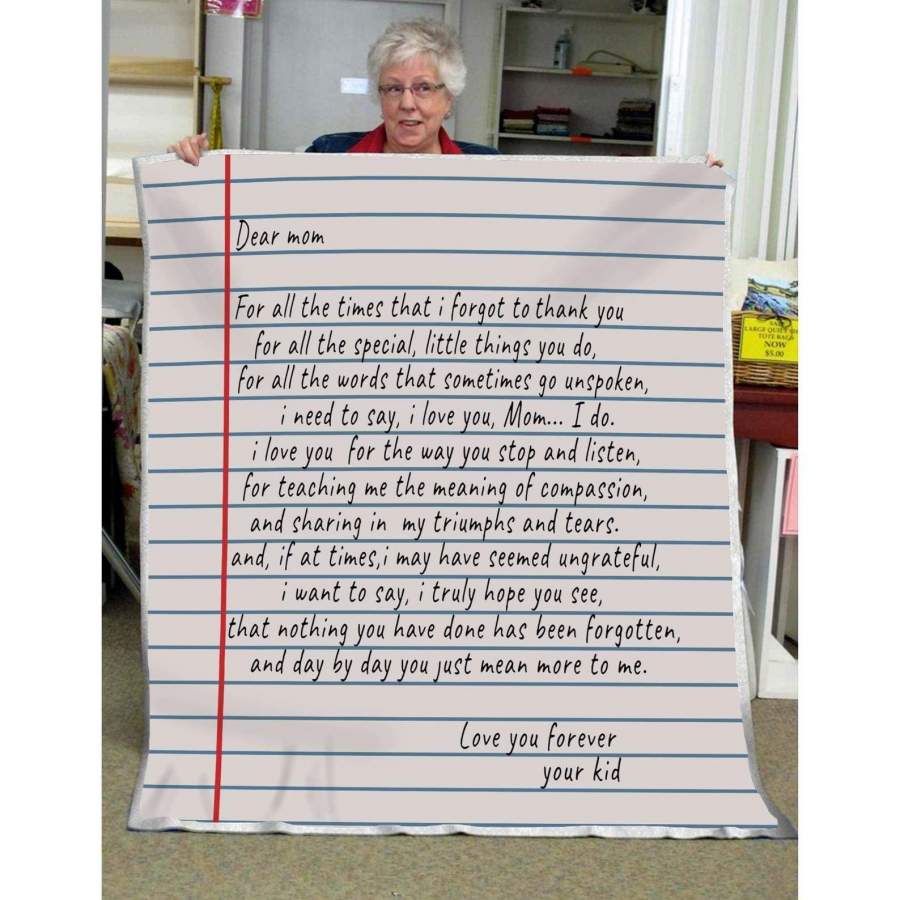 Dear mom
For all the times that i forgot to thank you
for all the special, little things you do,
for all the words that sometimes go unspoken,
i need to say, i love you, Mom... I do.
i love you for the way you stop and listen,
for teaching me the meaning of compassion,
and sharing in my triumphs and tears.
and, if at times,i may have seemed ungrateful,
i want to say, i truly hope you see,
that nothing you have done has been forgotten,
and day by day you just mean more to me.
Love you forever
your kid
LARGE QUILT
TOTE BAGS
NOW
$5.00